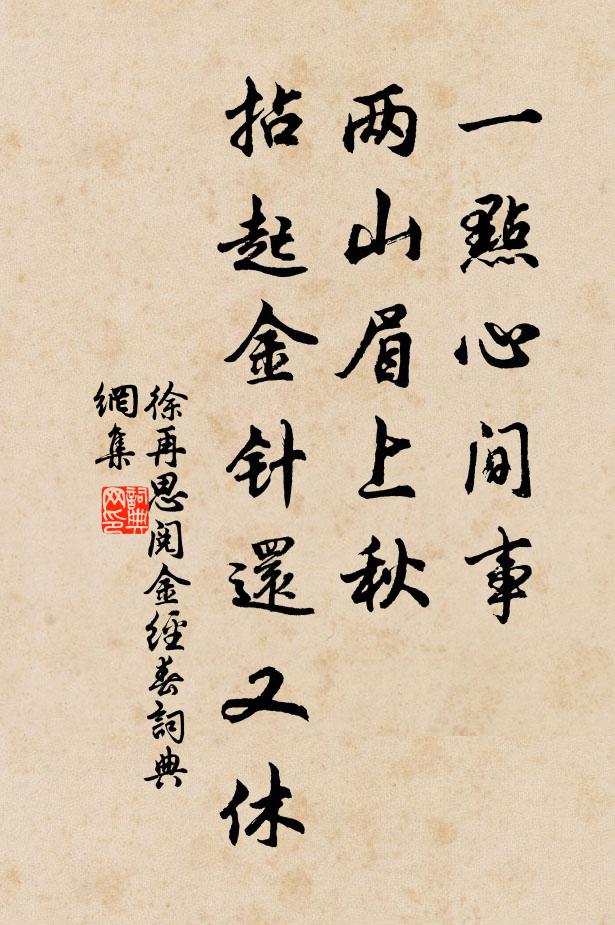 一點心间事
两山眉上秋
拈起金针還又休
徐再思閱金經春詞典
網集
詞典
网印